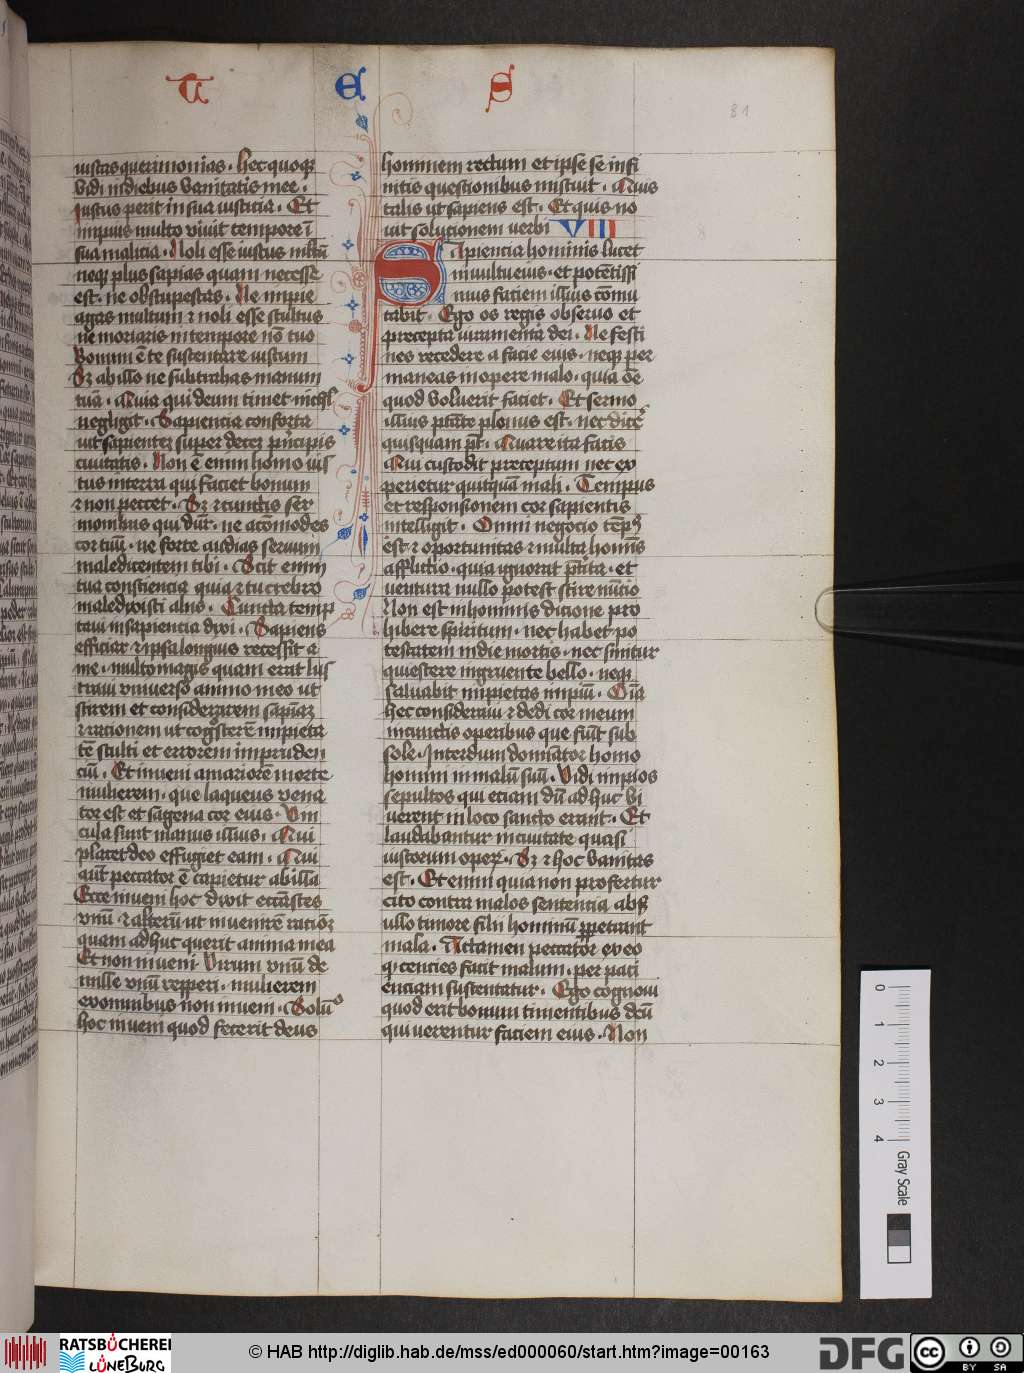 T E S
81
iustas querimonias. hec quoqꝫ
vidi in diebus vanitatis mee.
iustus perit in sua iusticia. Et
impius multo vivit tempore ī
sua malicia. Noli esse iustus mltū
neqꝫ plus sapias quam necesse
est. ne obstupescas. Ne impie
agas multum ⁊ noli esse stultus
ne moriaris in tempore nō tuo
Bonum ē te sustentare iustum
Sꝫ ab illo ne subtrahas manum
tuā. Quia qui deum timet nichˡ
negligit. Sapiencia conforta
uit sapientes super decez principis
ciuitatis. Non ē enim homo ius
tus in terra qui faciet bonum
⁊ non peccet. Sꝫ ⁊ cunctis ser
monibus qui dūr. ne acōmodes
cor tuū. ne forte audias seruum
maledicentem tibi. Scit enim
tua consciencia quia ⁊ tu crebro
maledixisti aliis. Cuncta temp
taui in sapiencia dixi. Sapiens
efficiar ⁊ ipsa longius recessit a
me. multo magis quam erat lus
traui vniuerso animo meo ut
scirem et considerarem sapīaꝫ
⁊ racionem ut cognoscerē impieta
tē stulti et errorem impruden
ciū. Et inueni amariorē morte
mulierem. que laqueus vena
tor est et sagena cor eius. Vin
cula sunt manus illius. Qui
placet deo effugiet eam. Qui
aūt peccator ē capietur ab illa
Ecce inueni hoc dixit ecclīastes
vnū ⁊ alterū ut inuenirē racioēꝫ
quam adhuc querit anima mea
Et non inueni Virum vnū de
mille vnū repperi. mulierem
ex omnibus non inueni. Solūᵒ
hoc inueni quod fecerit deus
hominem rectum et ipse se infi
nitis questionibus miscuit. Quis
talis ut sapiens est. Et quis no
uit solucionem verbi VIII
8
Sapiencia hominis lucet
in vultu eius. et potētissi
mus faciem illius cōmu
tabit. Ego os regis obseruo et
precepta iuramenta dei. Ne festi
nes recedere a facie eius. neqꝫ per
maneas in opere malo. quia oē
quod voluerit faciet. Et sermo
illius ptāte plenus est. nec dicere
quisquam pt̄. Quare ita facis
Qui custodit preceptum nec ex
perietur quitquā mali. Tempus
et responsionem cor sapientis
intelligit. Omni negocio tēpꝰ
est ⁊ oportunitas ⁊ multa homīs
afflictio. quia ignorat pt̄ita. et
uentura nullo potest scire nūcio
Non est in hominis dicione pro
hibere spiritum. nec habet po
testatem in die mortis. nec sinitur
quiescere ingruente bello. neqꝫ
saluabit impietas impiū. Oīa
hec consideraui ⁊ dedi cor meum
in cunctis operibus que fiūt sub
sole. Interdum domīator homo
homini in malū suū. Vidi impios
sepultos qui eciam dū adhuc vi
uerent in loco sancto erant. Et
laudabantur in ciuitate quasi
iustorum operꝫ. Sꝫ ⁊ hoc vanitas
est. Et enim quia non profertur
cito contra malos sentencia absqꝫ
ullo timore filii hominū ꝑpetrant
mala. Attamen peccator ex eo
qꝫ cencies facit malum. per paci
enciam sustentatur. Ego cognoui
quod erit bonum timentibus deū
qui uerentur faciem eius. Non
0
1
2
3
4
Gray Scale
RATSBÜCHEREI
LÜNEBURG
© HAB http://diglib.hab.de/mss/ed000060/start.htm?image=00163
DFG
cc
BY SA